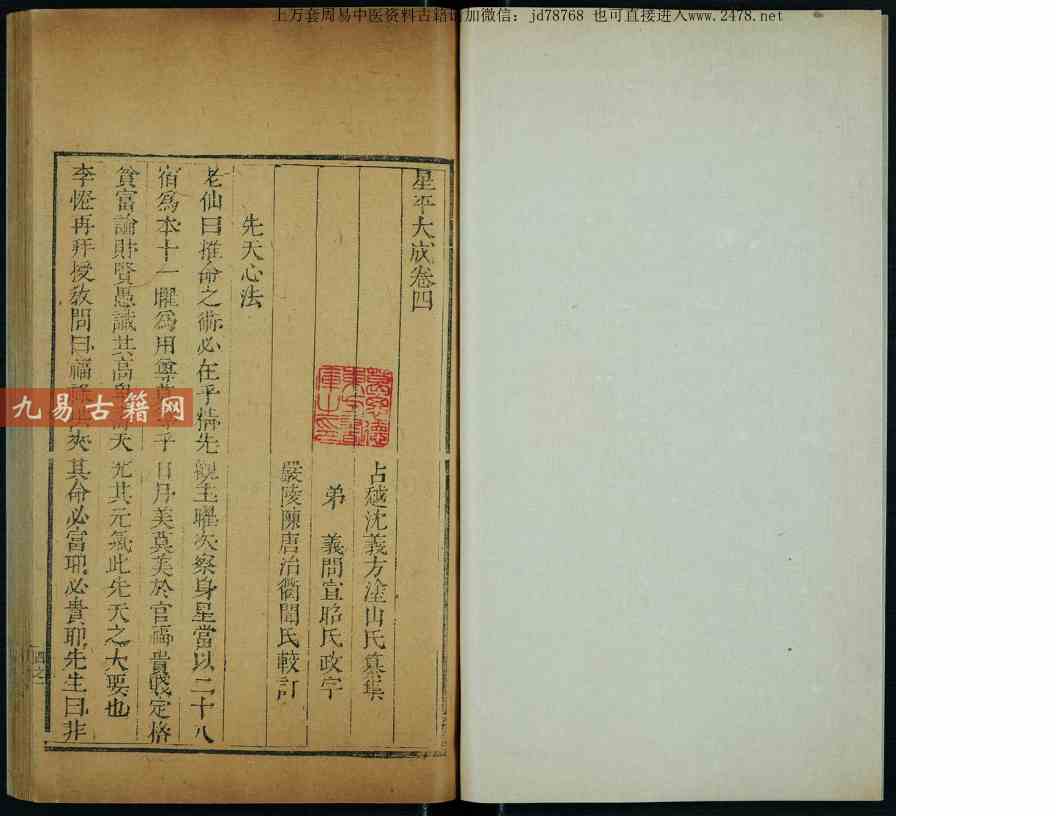 上万套周易中医资料古籍请加微信：jd78768 也可直接进入www.2478.net
星平大成卷四
古越沈義方塗山氏纂集
弟 義問宣昭氏政字
嚴陵陳唐治衢聞氏較訂
先天心法
老仙曰推命之術必在乎精先觀主曜次察身星當以二十八
宿為本十一曜為用 乎日月美莫美於官福貴賤定格
貧富論財賢愚識其高 天元其元氣此先天之大要也
李憕再拜授教問曰福祿 夾其命必富耶必貴耶先生曰非
九易古籍网